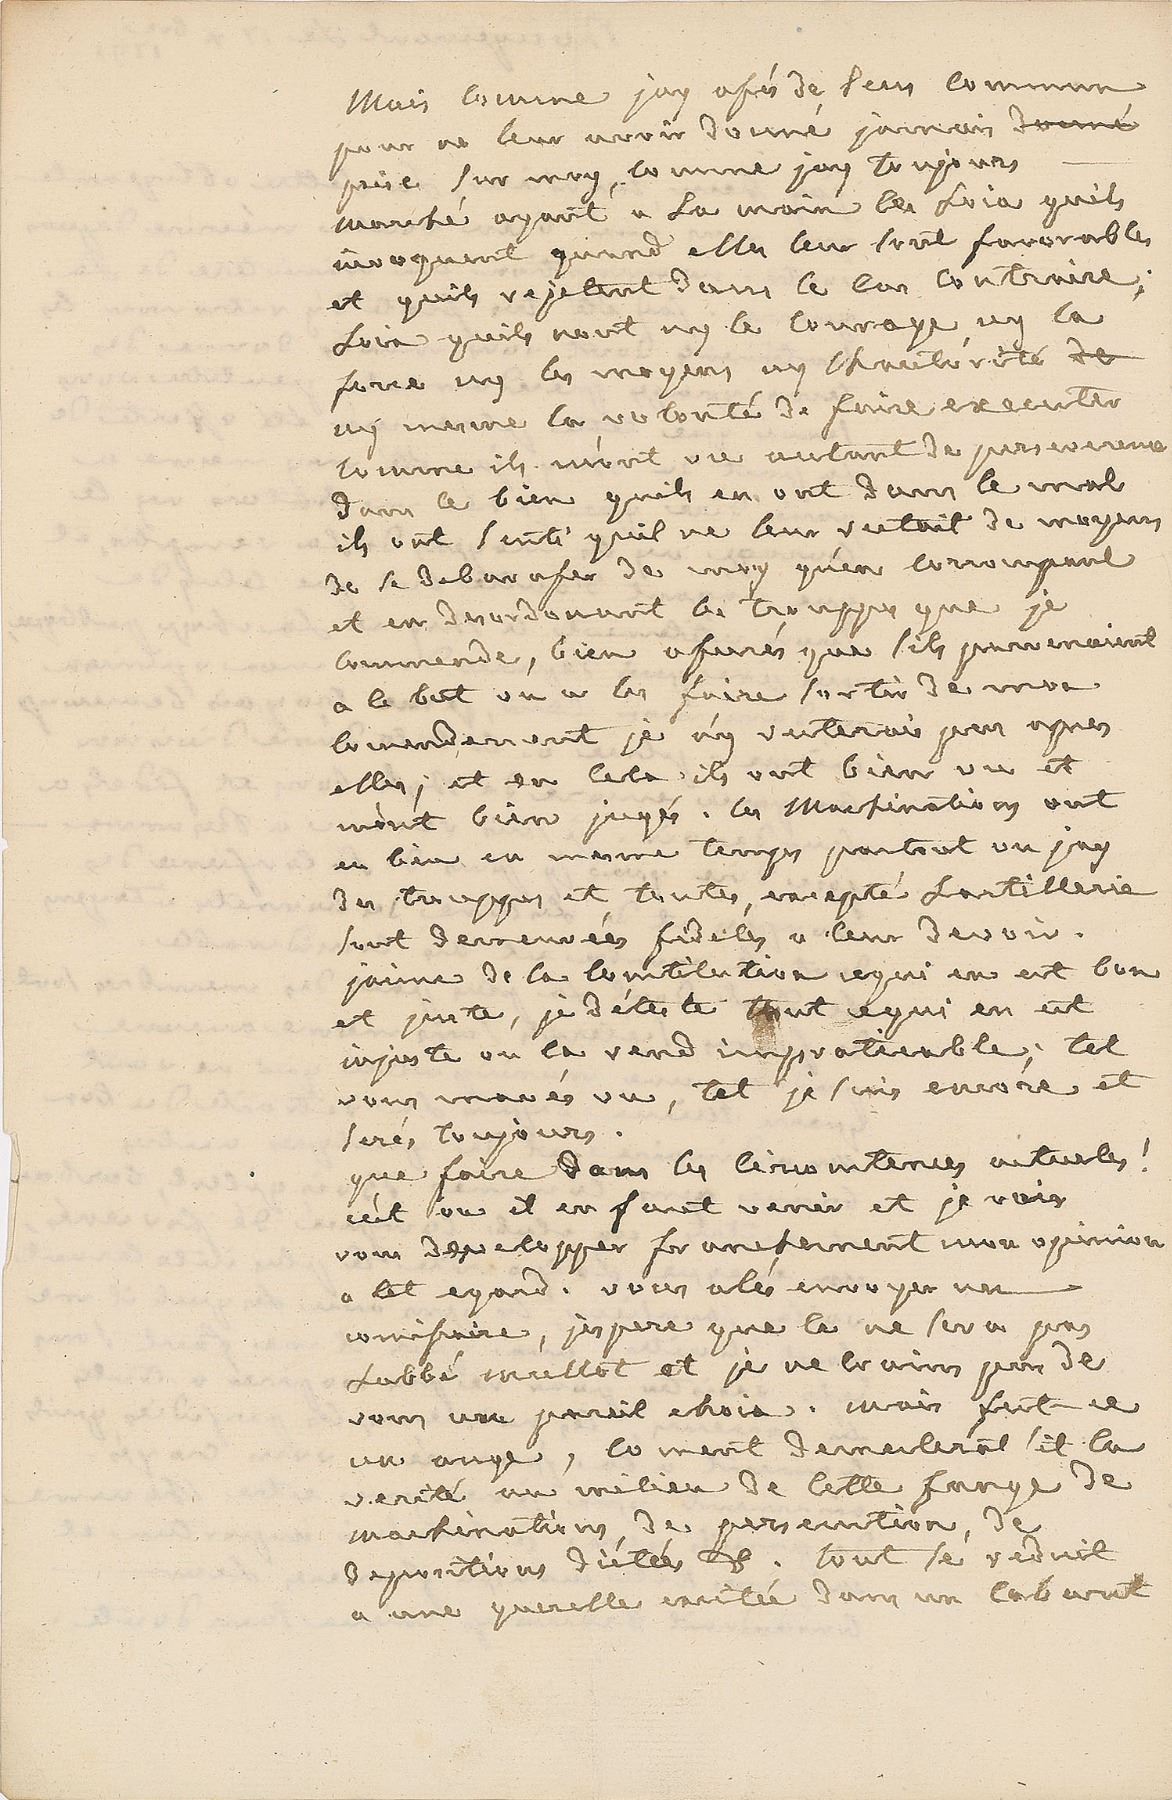 Mais comme jay assés de sens commun
pour ne leur avoir donné jamais donné
prise sur moy, comme jay toujours
marché ayant a La main les Loix quils
invoquent quand elles leur sont favorables
et quils rejetent dans le cas contraire;
Loix quils nont ny le courage ny la
force ny les moyens ny Lhautórité de
ny mesme la volonté de faire executer
comme ils. m'ont vu autant de perseverence
dans le bien quils en ont dans le mal
ils ont senti quil ne leur restait de moyens
de se debarasser de moy qu'en corrompant
et en desordonant les trouppes que je
commende, bien assurés que sils parvenaient
a ce but ou a les faire sortir de mon
comendement je n'y resterais pas apres
elles; et en cela ils ont bien vu et
m'ont bien jugés. les Machinations ont
eu lieu en mesme temps partout ou jay
des trouppes et toutes, excepté Lartillerie
sont demeurées fidéles a leur devoir.
jaime de la constitution cequi en est bon
et juste, je déteste tout cequi en est
injuste ou la rend impraticable; tel
vous mavés vu, tel je suis encóre et
serés toujours.
que faire dans les circomstences actuelles!
cést ou il en faut venir et je vais
vous developper franchement mon opinion
a cet egard. vous alés envoyer un
comissaire, jespere que ce ne sera pas
Labbé mullot et je ne crains pas de
vous un pareil choix. mais fut ce
un ange, coment demeslerat il la
verité au milieu de cette fange de
machinations, de persecution, de
depositions dictées &. tout se reduit
a une querelle excitée dans un cabaret